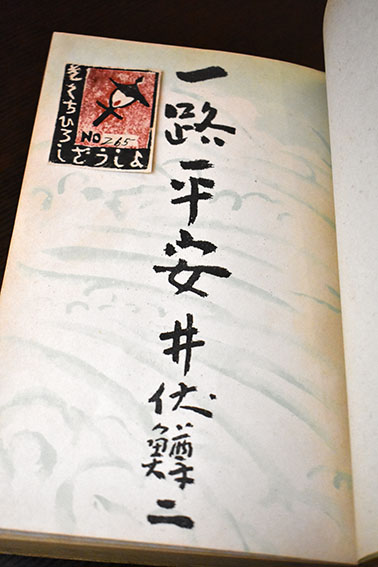 一路平安 井伏鱒二
きくちひろしざうしよ
NO 765